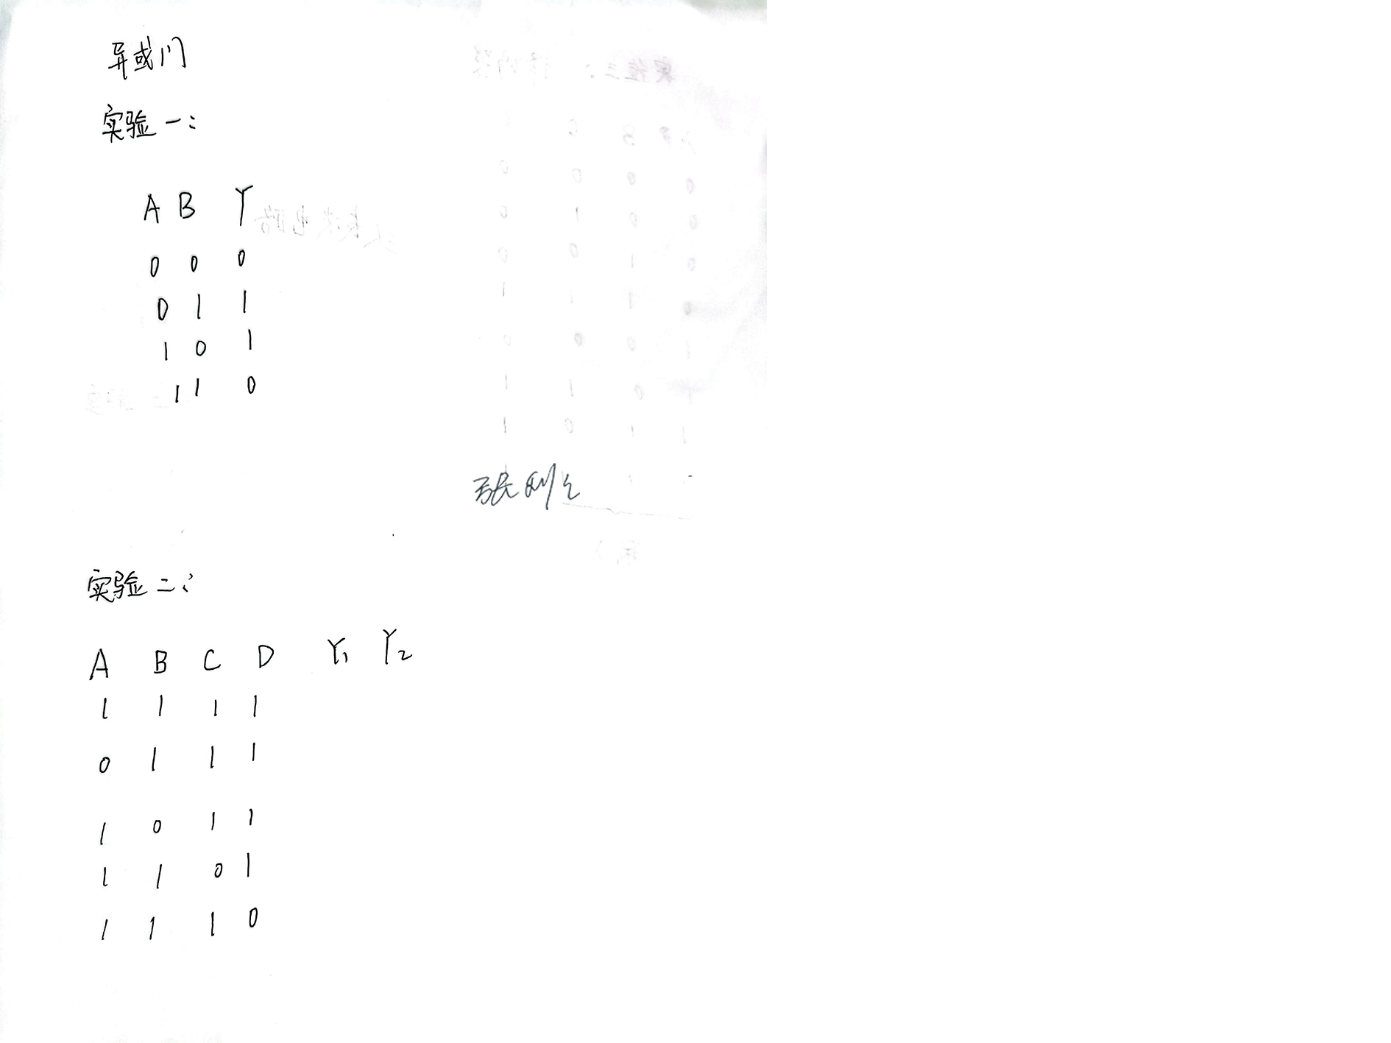 异或门
实验一:
A B Y
0 0 0
0 1 1
1 0 1
1 1 0
实验二:
A B C D Y1 Y2
1 1 1 1
0 1 1 1
1 0 1 1
1 1 0 1
1 1 1 0